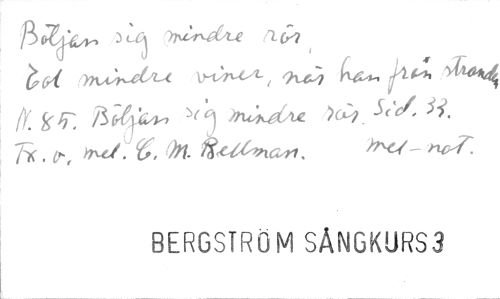 Böljan sig mindre rör,
Eol mindre viner, när han från stranden
N. 85. Böljan sig mindre rör. Sid. 33.
Tx. o. mel. C. M. Bellman. mel-not.
BERGSTRÖM SÅNGKURS 3